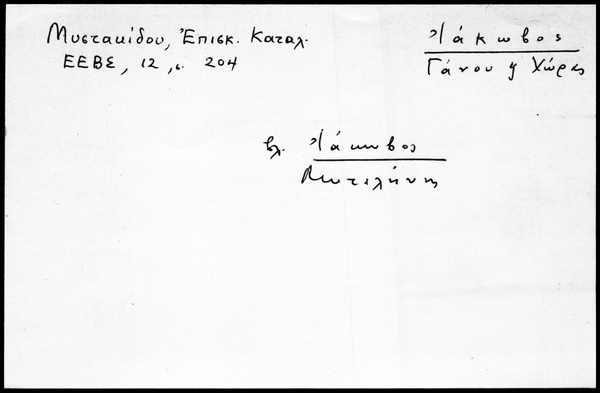 Μυστακίδου, Ἐπισκ. Καταλ.
ΕΕΒΣ, 12, σ. 204
Ἰάκωβος
Γάνου ϗ Χώρας
βλ. Ἰάκωβος
Μυτιλήνης